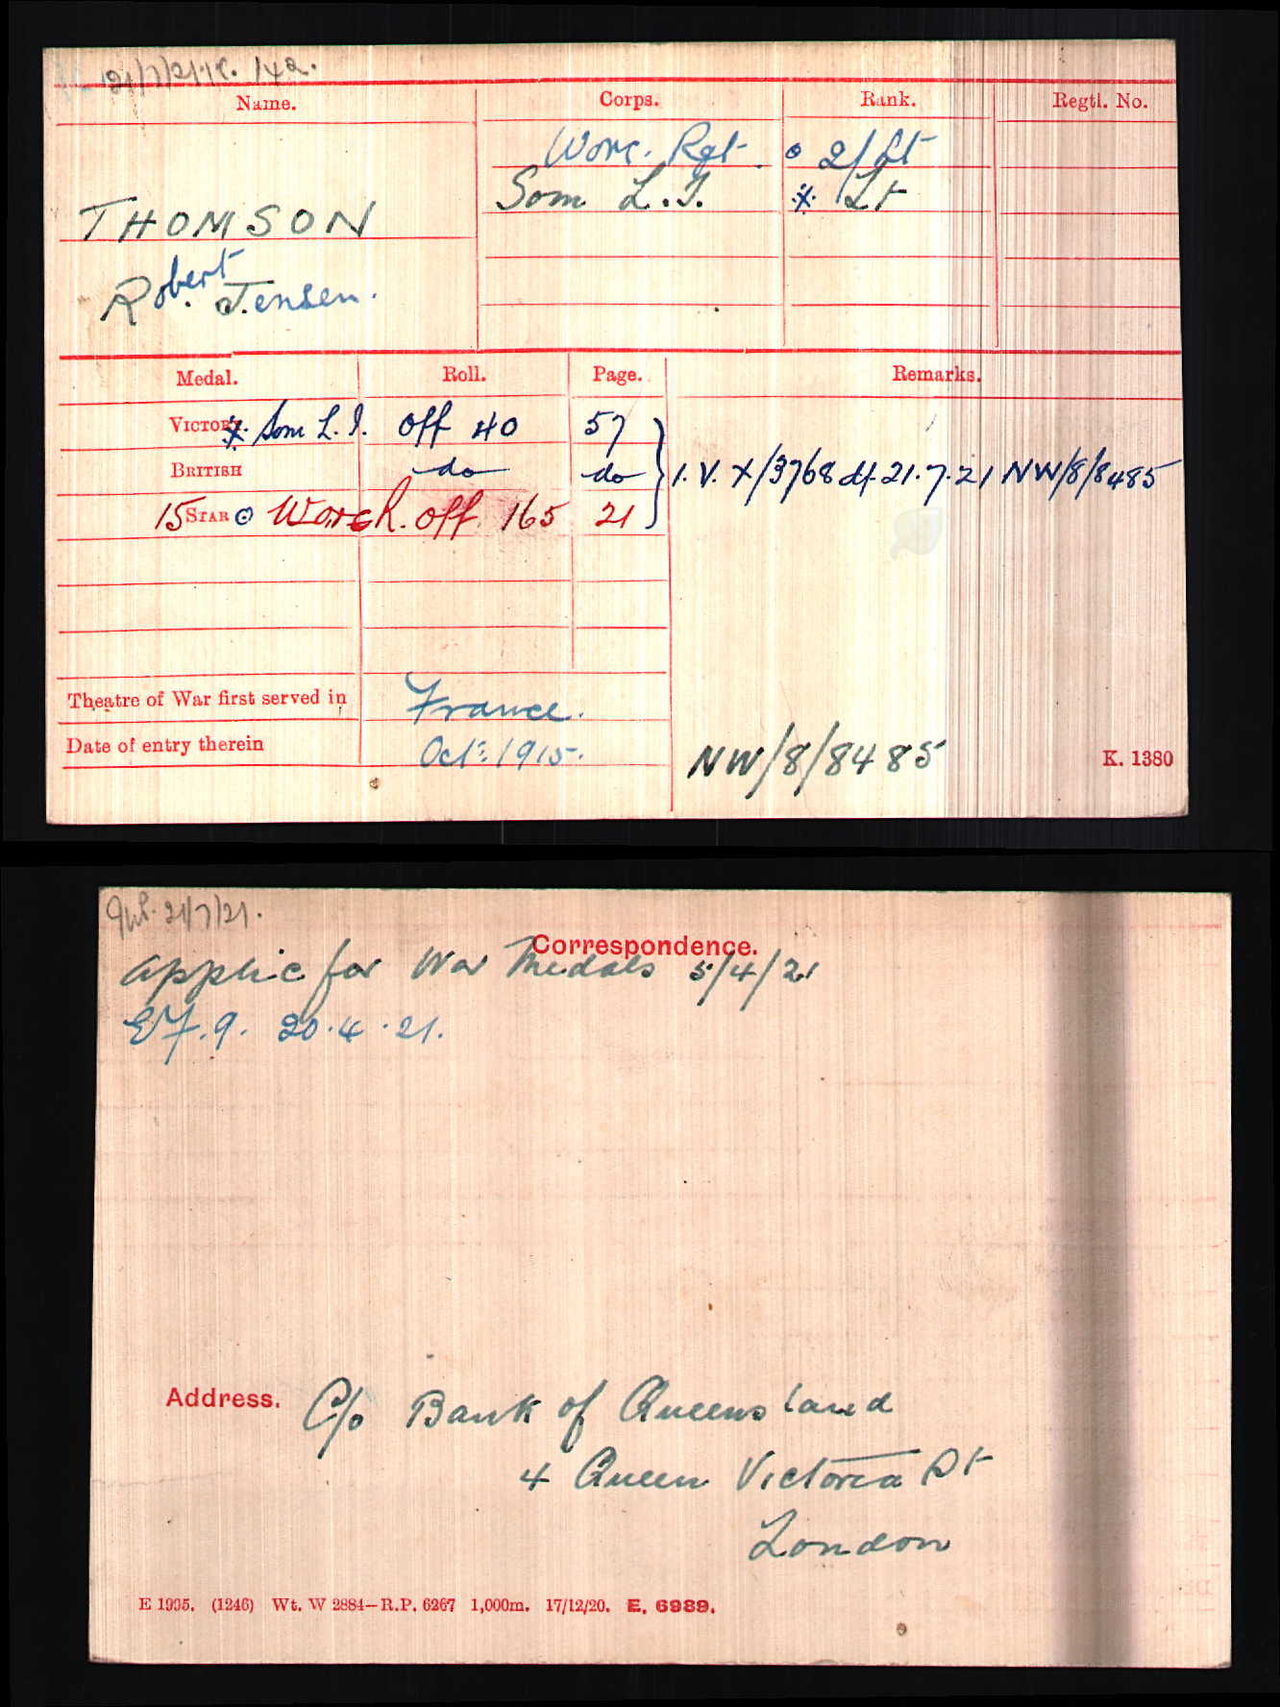 Name. Corps. Rank. Regtl. No.
Worc. Rgt. ⊙ 2/Lt
THOMSON Som L.I. ※ Lt
Robert Jensen.
Medal. Roll. Page. Remarks.
VICTORY ※ Som L.I. Off 40 57
BRITISH do do I.V. X/3768 df 21.7.21 NW/8/8485
15 STAR ⊙ Worc R. Off. 165 21
Theatre of War first served in France.
Date of entry therein Oct: 1915.
NW/8/8485 K. 1380
21/7/21.
Correspondence.
Applic for War Medals 5/4/21
EF.9. 20.4.21.
Address. C/o Bank of Queensland
4 Queen Victoria St
London
E 1995. (1246) Wt. W 2884—R.P. 6267 1,000m. 17/12/20. E. 6989.